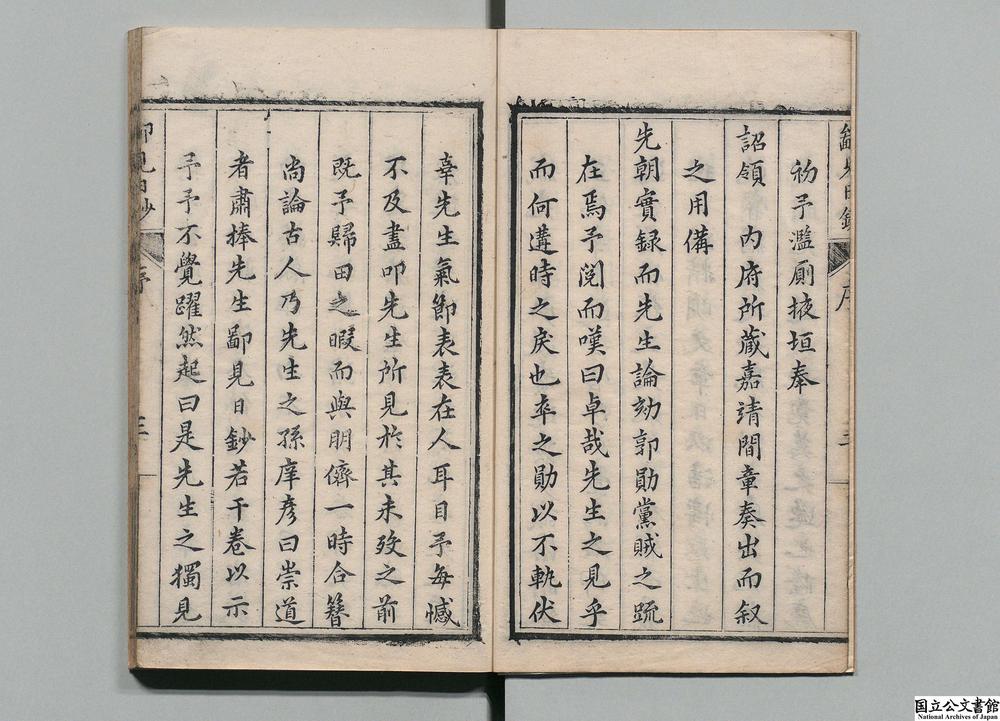 初予濫厠掖垣奉
詔領 内府所藏嘉靖間章奏出而叙
之用備
先朝實録而先生論劾郭勛黨賊之疏
在焉予閲而嘆曰卓哉先生之見乎
而何遘時之戾也卒之勛以不軌伏
辜先生氣節表表在人耳目予每憾
不及盡叩先生所見於其未歿之前
既予歸田之暇而與朋儕一時合簪
尚論古人乃先生之孫庠彦曰崇道
者肅捧先生鄙見日鈔若干卷以示
予予不覺躍然起曰是先生之獨見
序
三
国立公文書館
National Archives of Japan